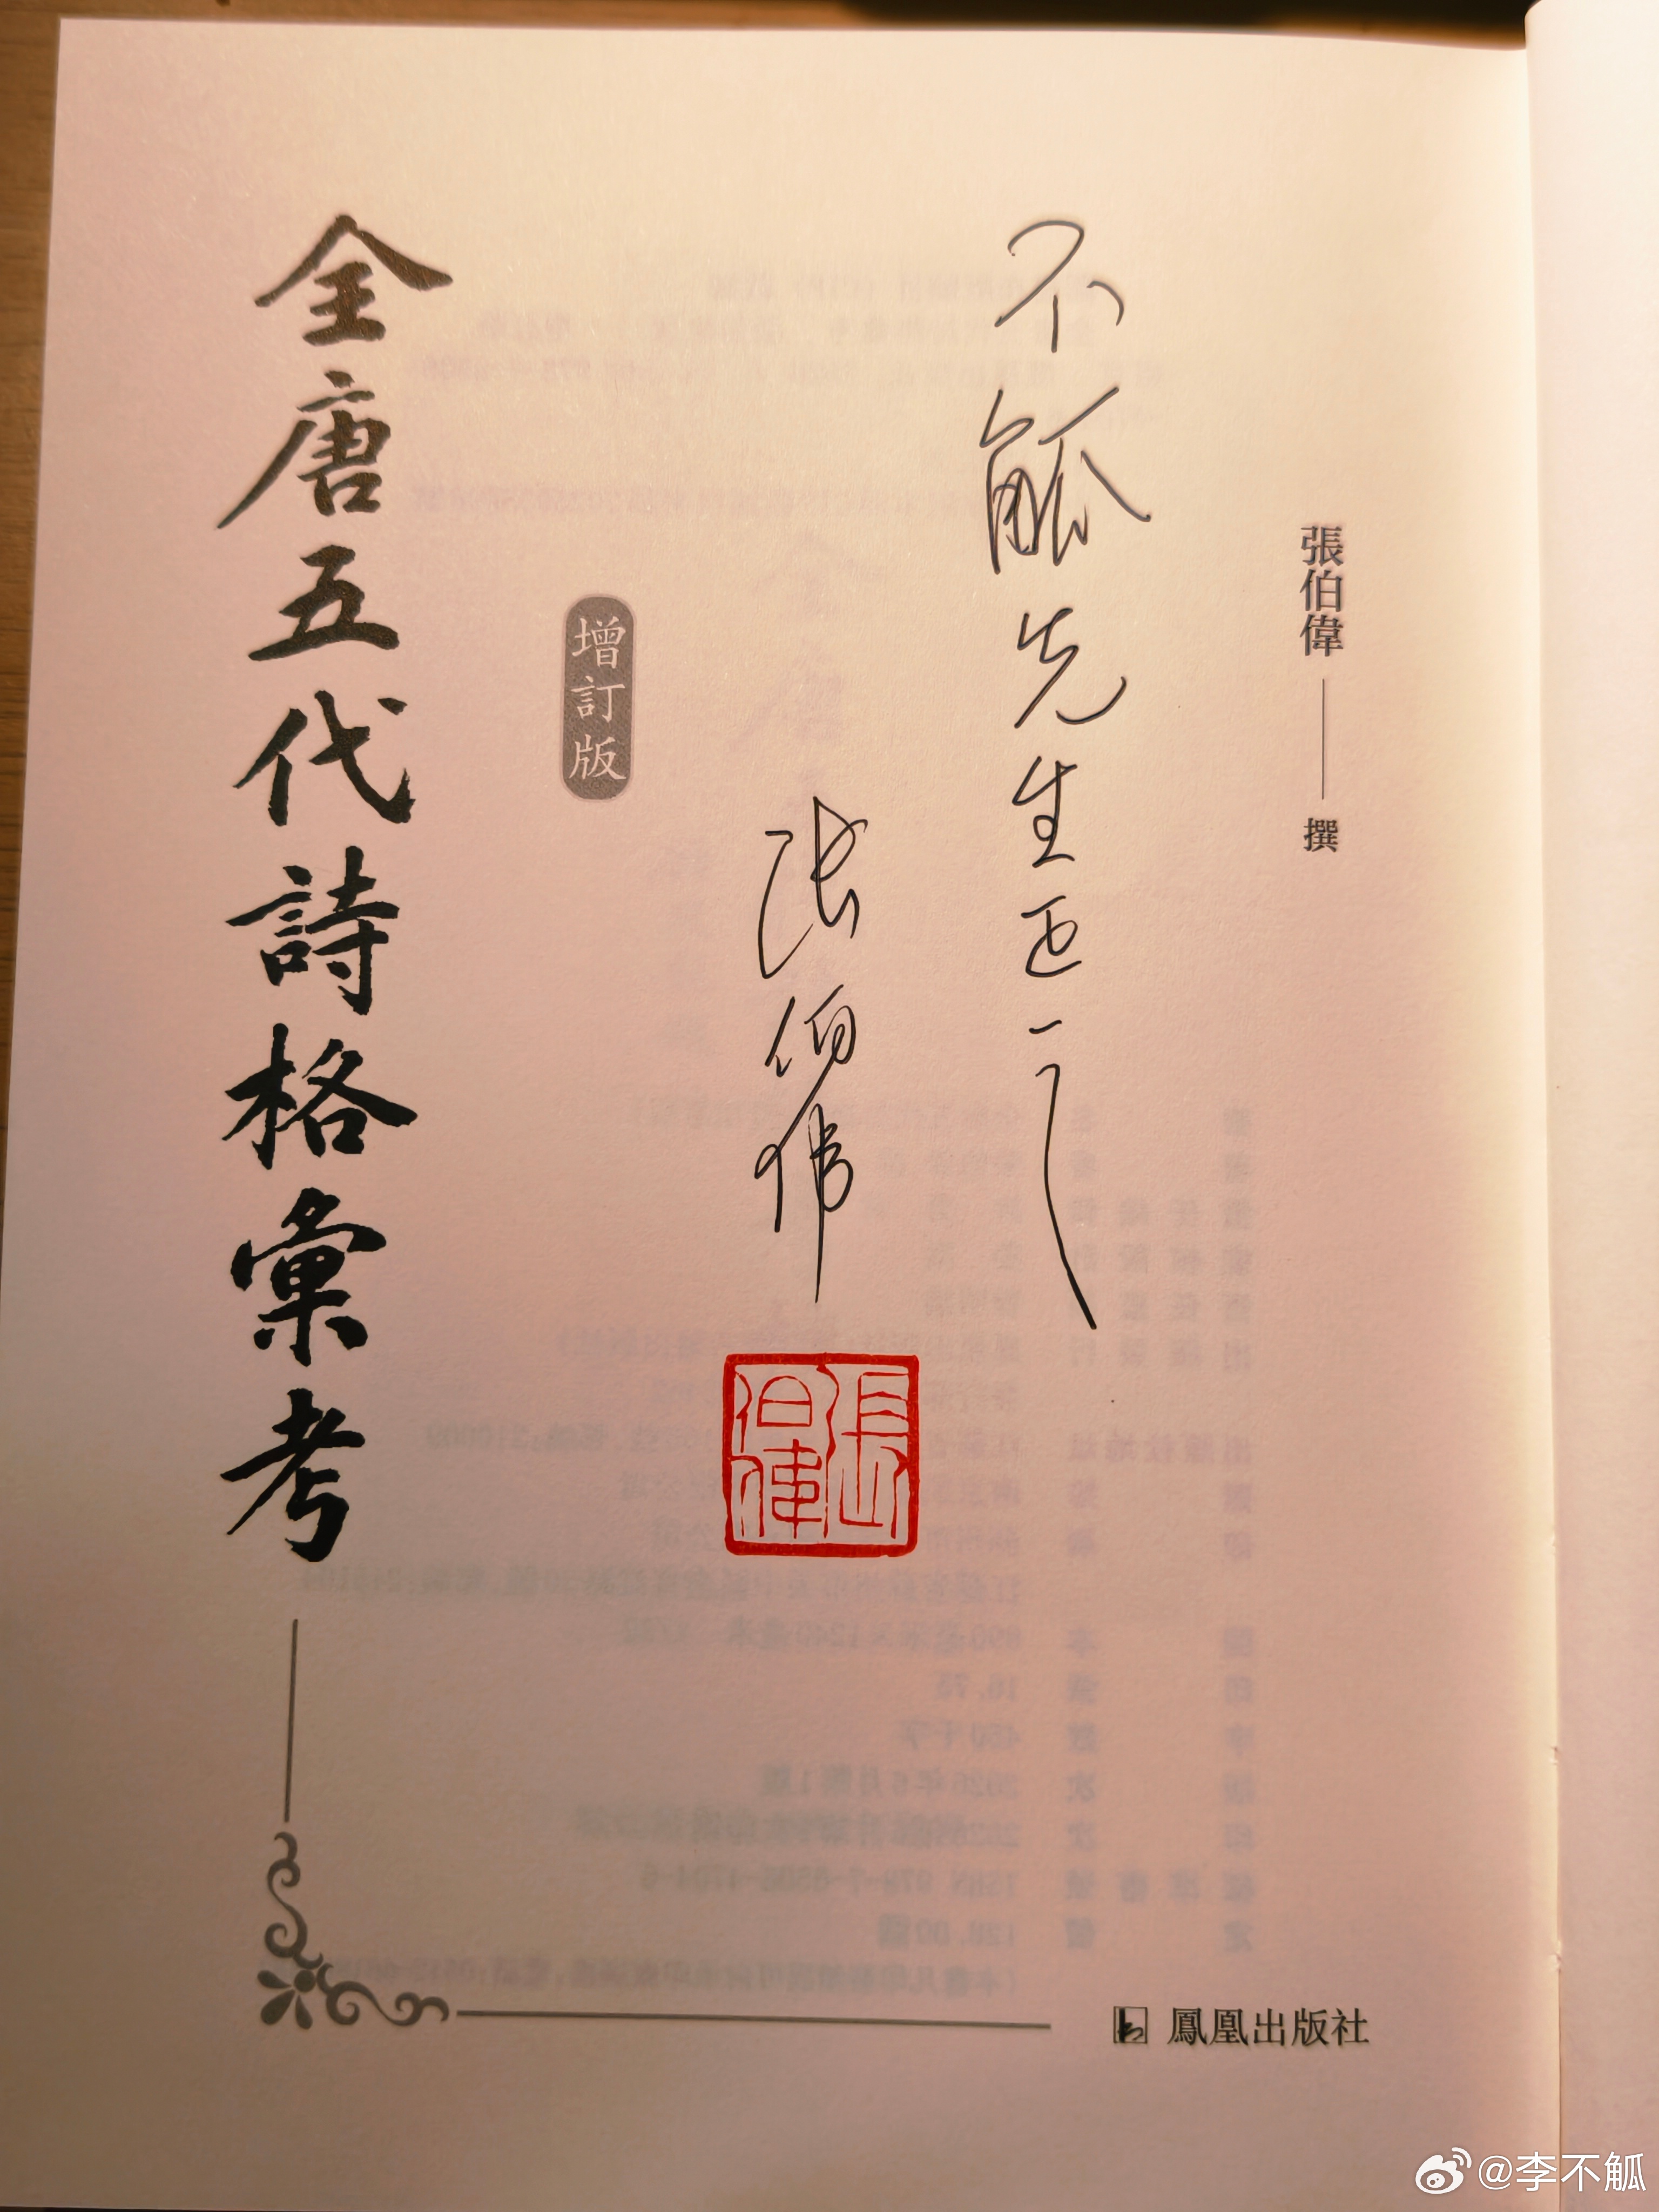 張伯偉 撰
不觚先生正之
张伯伟
張伯偉
增訂版
全唐五代詩格彙考
鳳凰出版社
@李不觚